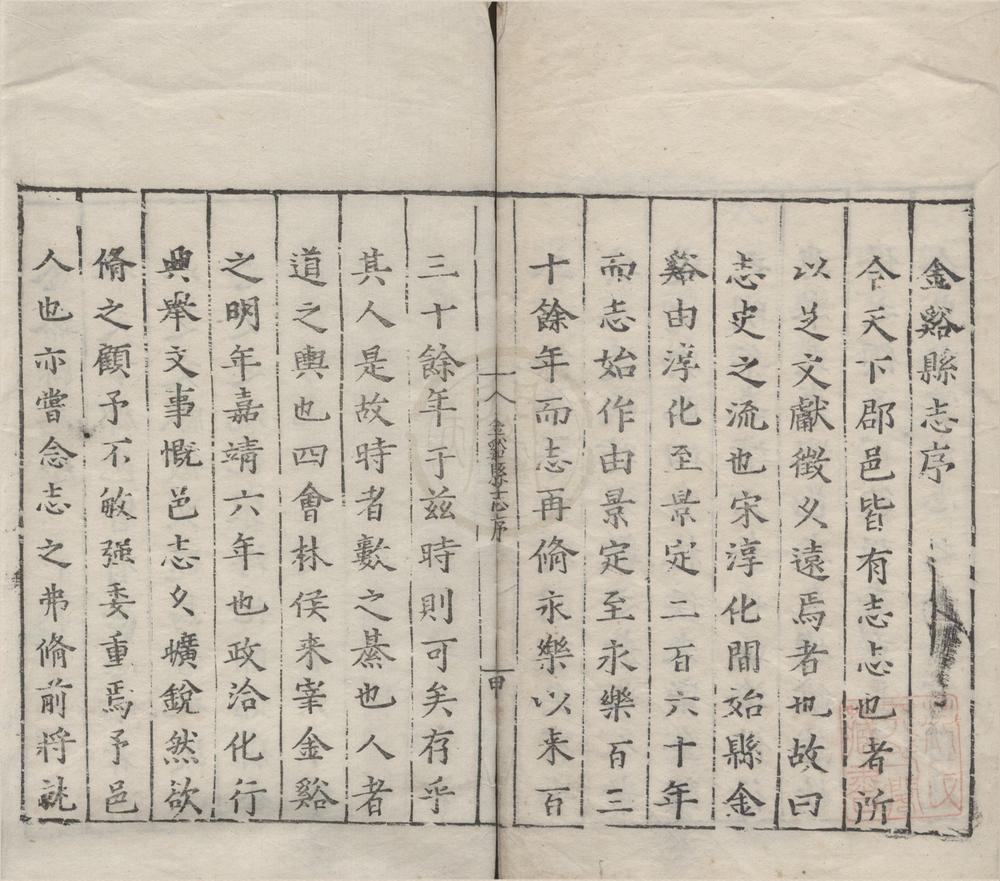 金谿縣志序
今天下郡邑皆有志志也者所
以𭕒文獻徵久遠焉者也故曰
志史之流也宋淳化間始縣金
谿由淳化至景定二百六十年
而志始作由景定至永樂百三
十餘年而志再脩永樂以来百
金谿縣志序
三十餘年于兹時則可矣存乎
其人是故時者數之綦也人者
道之輿也四會林侯来宰金谿
之明年嘉靖六年也政洽化行
典舉文事慨邑志久曠銳然欲
脩之顧予不敏强委重焉予邑
人也亦嘗念志之弗脩前將